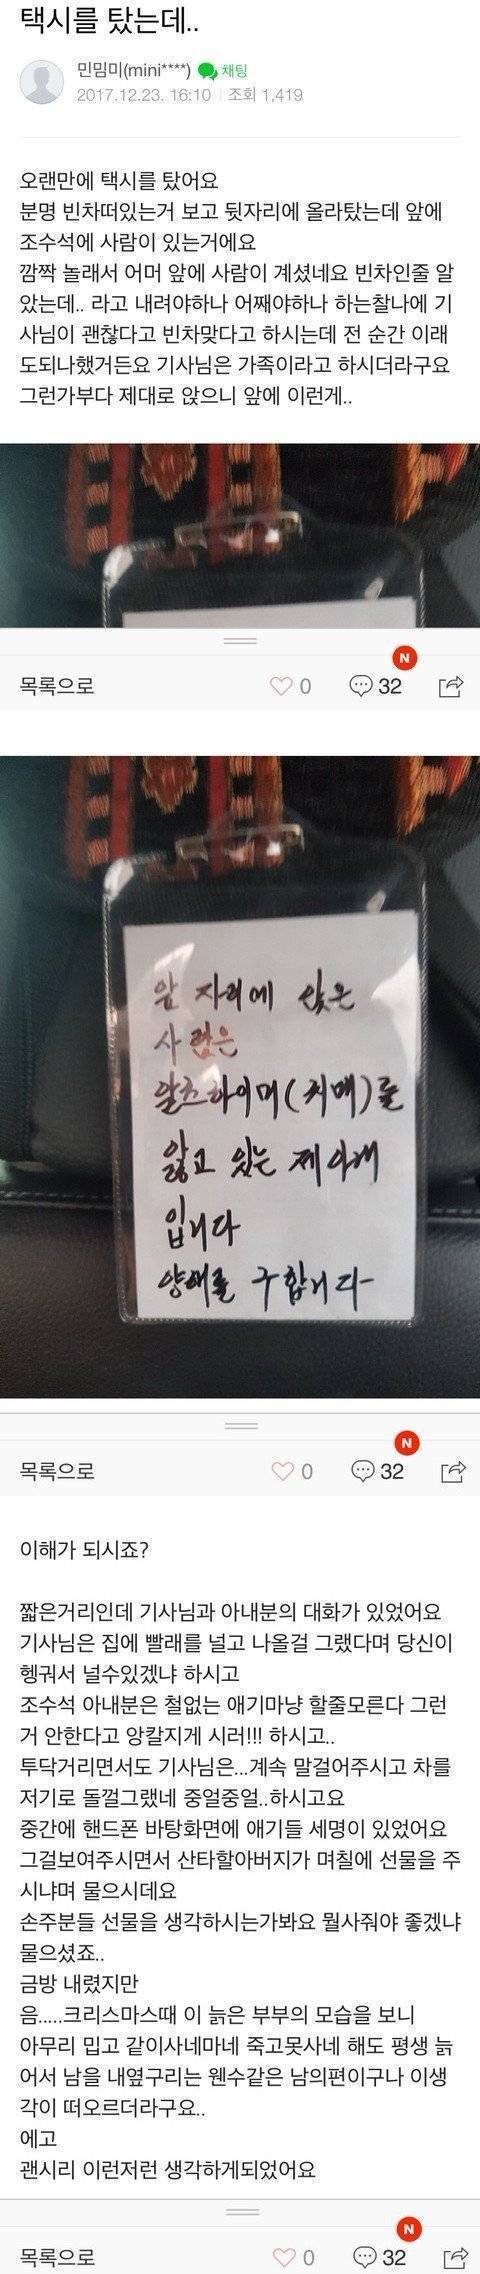 택시를 탔는데..
민밈미(mini****) 채팅
2017.12.23. 16:10 조회 1,419
오랜만에 택시를 탔어요
분명 빈차떠있는거 보고 뒷자리에 올라탔는데 앞에
조수석에 사람이 있는거에요
깜짝 놀래서 어머 앞에 사람이 계셨네요 빈차인줄 알
았는데.. 라고 내려야하나 어째야하나 하는찰나에 기
사님이 괜찮다고 빈차맞다고 하시는데 전 순간 이래
도되나했거든요 기사님은 가족이라고 하시더라구요
그런가부다 제대로 앉으니 앞에 이런게..
N
목록으로 0 32
앞 자리에 앉은
사람은
알츠하이머(치매)를
앓고 있는 제 아내
입니다
양해를 구합니다
N
목록으로 0 32
이해가 되시죠?
짧은거리인데 기사님과 아내분의 대화가 있었어요
기사님은 집에 빨래를 널고 나올걸 그랬다며 당신이
헹궈서 널수있겠냐 하시고
조수석 아내분은 철없는 애기마냥 할줄모른다 그런
거 안한다고 앙칼지게 시러!!! 하시고..
투닥거리면서도 기사님은...계속 말걸어주시고 차를
저기로 돌껄그랬네 중얼중얼..하시고요
중간에 핸드폰 바탕화면에 애기들 세명이 있었어요
그걸보여주시면서 산타할아버지가 며칠에 선물을 주
시냐며 물으시데요
손주분들 선물을 생각하시는가봐요 뭘사줘야 좋겠냐
물으셨죠..
금방 내렸지만
음.....크리스마스때 이 늙은 부부의 모습을 보니
아무리 밉고 같이사네마네 죽고못사네 해도 평생 늙
어서 남을 내옆구리는 웬수같은 남의편이구나 이생
각이 떠오르더라구요..
에고
괜시리 이런저런 생각하게되었어요
N
목록으로 0 32